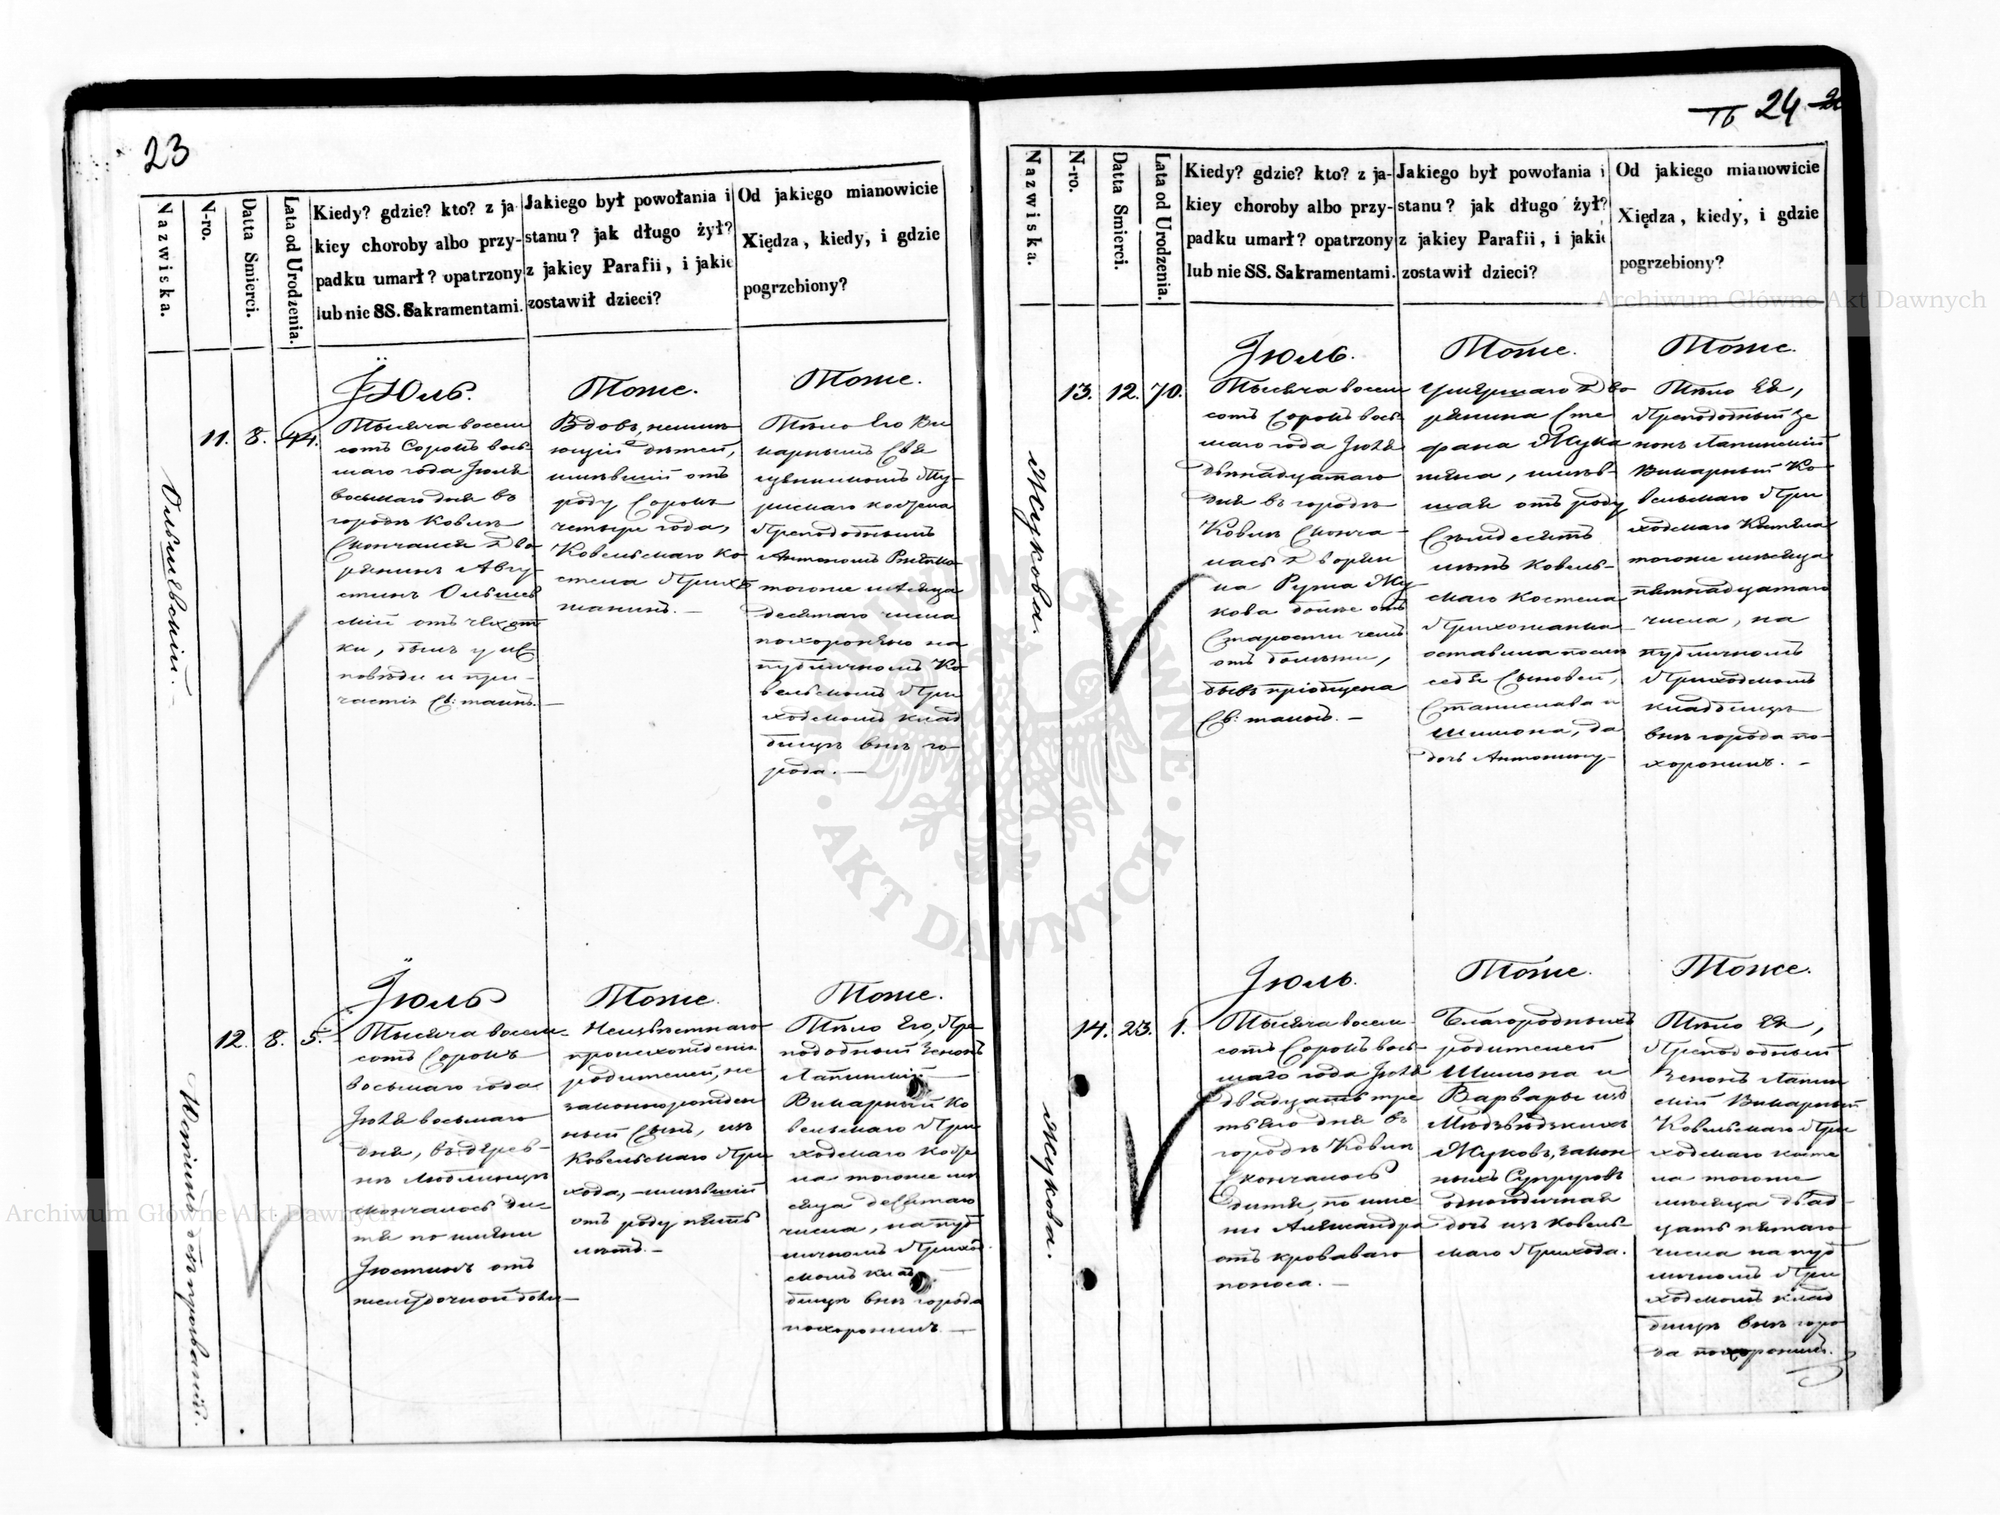 23
Nazwiska.
N-ro.
Data Smierci.
Lata od Urodzenia.
Kiedy? gdzie? kto? z ja
kiey choroby albo przy-
padku umarł? opatrzony
lub nie SS. Sakramentami.
Jakiego był powołania i
stanu? jak długo żył?
z jakiey Parafii, i jakie
zostawił dzieci?
Od jakiego mianowicie
Xiędza, kiedy, i gdzie
pogrzebiony?
11. 8. 44.
Іюль.
Тысяча восем
сотъ Сорокъ вось
маго года Іюля
восьмаго дня въ
городѣ Ковлѣ
Скончался Дво
рянинъ Авгу
стинъ Ольшев
скій отъ чахот
ки, былъ у ис
повѣди и при-
частія Св: таинъ.—
Тоже.
Вдовъ, неимѣ
ющій дѣтей,
имѣвшій отъ
роду Сорокъ
четыре года,
Ковельскаго ко
стела Прихо
жанинъ.—
Тоже.
Тѣло Его Ви
карнымъ
Преподобнымъ
Антономъ
тогоже мѣсяца
десятаго числа
похоронено на
публичномъ Ко
вельскомъ При
ходскомъ клад
бищѣ внѣ го
рода.—
12. 8. 5.
Іюль
Тысяча восем
сотъ Сорокъ
восьмаго года
Іюля восьмаго
дня, въ дерев-
нѣ Люблинцѣ
скончалось ди-
тя по имени
Іюстинъ отъ
желудочной боли—
Тоже.
Неизвѣстнаго
происхожденія
родителей, не
законнорожден
ный Сынъ, изъ
Ковельскаго При
хода, имѣвшій
отъ роду пять
лѣтъ.—
Тоже.
Тѣло Его, Пре
подобный Зенонъ
Лапинскій
Викарный Ко
вельскаго При
ходскаго Косте
ла тогоже мѣ
сяца десятаго
числа, на пуб
личномъ Приход
скомъ клад
бищѣ внѣ города
похоронилъ.—
24
Nazwiska.
N-ro.
Datta Smierci.
Lata od Urodzenia.
Kiedy? gdzie? kto? z ja-
kiey choroby albo przy-
padku umarł? opatrzony
lub nie SS. Sakramentami.
Jakiego był powołania i
stanu? jak długo żył?
z jakiey Parafii, i jakie
zostawił dzieci?
Od jakiego mianowicie
Xiędza, kiedy, i gdzie
pogrzebiony?
Жукова.
13. 12. 70.
Іюль.
Тысяча восем
сотъ Сорокъ вось
маго года Іюля
двѣнадцатаго
дня въ городѣ
Ковлѣ Сконча-
лась Дворян
ка Руфа Жу
кова болѣе отъ
Старости чемъ
отъ болѣзни,
бывъ пріобщена
Св: таинъ.—
Тоже.
Умершаго Дво
рянина Сте
фана Жука
жена, имѣв-
шая отъ роду
Семьдесятъ
лѣтъ Ковель-
скаго Костела
Прихожанка
оставила после
себя Сыновей,
Станислава и
Шимона, да
дочь Антонину
Тоже.
Тѣло Ея,
Преподобный Зе
нонъ Лапинскій
Викарный Ко
вельскаго При
ходскаго Костела
тогоже мѣсяца
пятнадцатаго
числа, на
публичномъ
Приходскомъ
кладбищѣ
внѣ города по-
хоронилъ.—
Жукова.
14. 23. 1.
Іюль.
Тысяча восем-
сотъ Сорокъ вось-
маго года Іюля
двадцать тре
тьяго дня въ
городѣ Ковлѣ
Скончалось
дитя, по име
ни Александра
отъ кроваваго
поноса.—
Тоже.
Благородныхъ
родителей
Шимона и
Варвары изъ
Жуковъ, закон
ныхъ Супруговъ
одногодичная
дочь изъ Ковель-
скаго Прихода.
Тоже.
Тѣло Ея,
Преподобный
Зенонъ Лапин
скій Викарный
Ковельскаго При
ходскаго косте
ла тогоже
мѣсяца двад
цать пятаго
числа на пуб
личномъ При
ходскомъ клад
бищѣ внѣ горо
да похоронилъ.
Archiwum Główne Akt Dawnych
Archiwum Główne Akt Dawnych
ARCHIWUM GŁÓWNE · AKT DAWNYCH ·